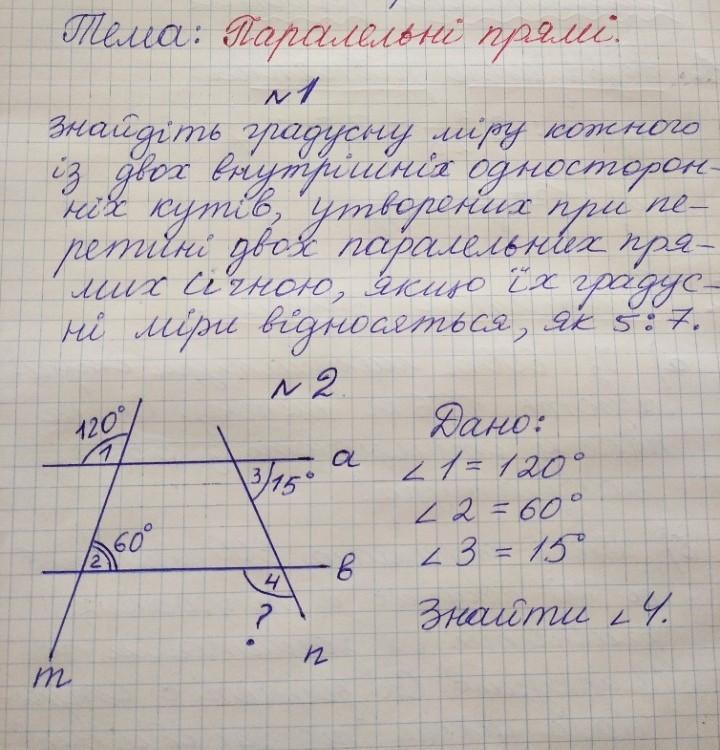 Тема: Паралельні прямі.
№1
Знайдіть градусну міру кожного
із двох внутрішніх односторон-
ніх кутів, утворених при пе-
ретині двох паралельних пря-
мих січною, якщо їх градус-
ні міри відносяться, як 5:7.
№2
120°
1
a
3
15°
60°
2
в
4
?
m
n
Дано:
∠1 = 120°
∠2 = 60°
∠3 = 15°
Знайти ∠4.